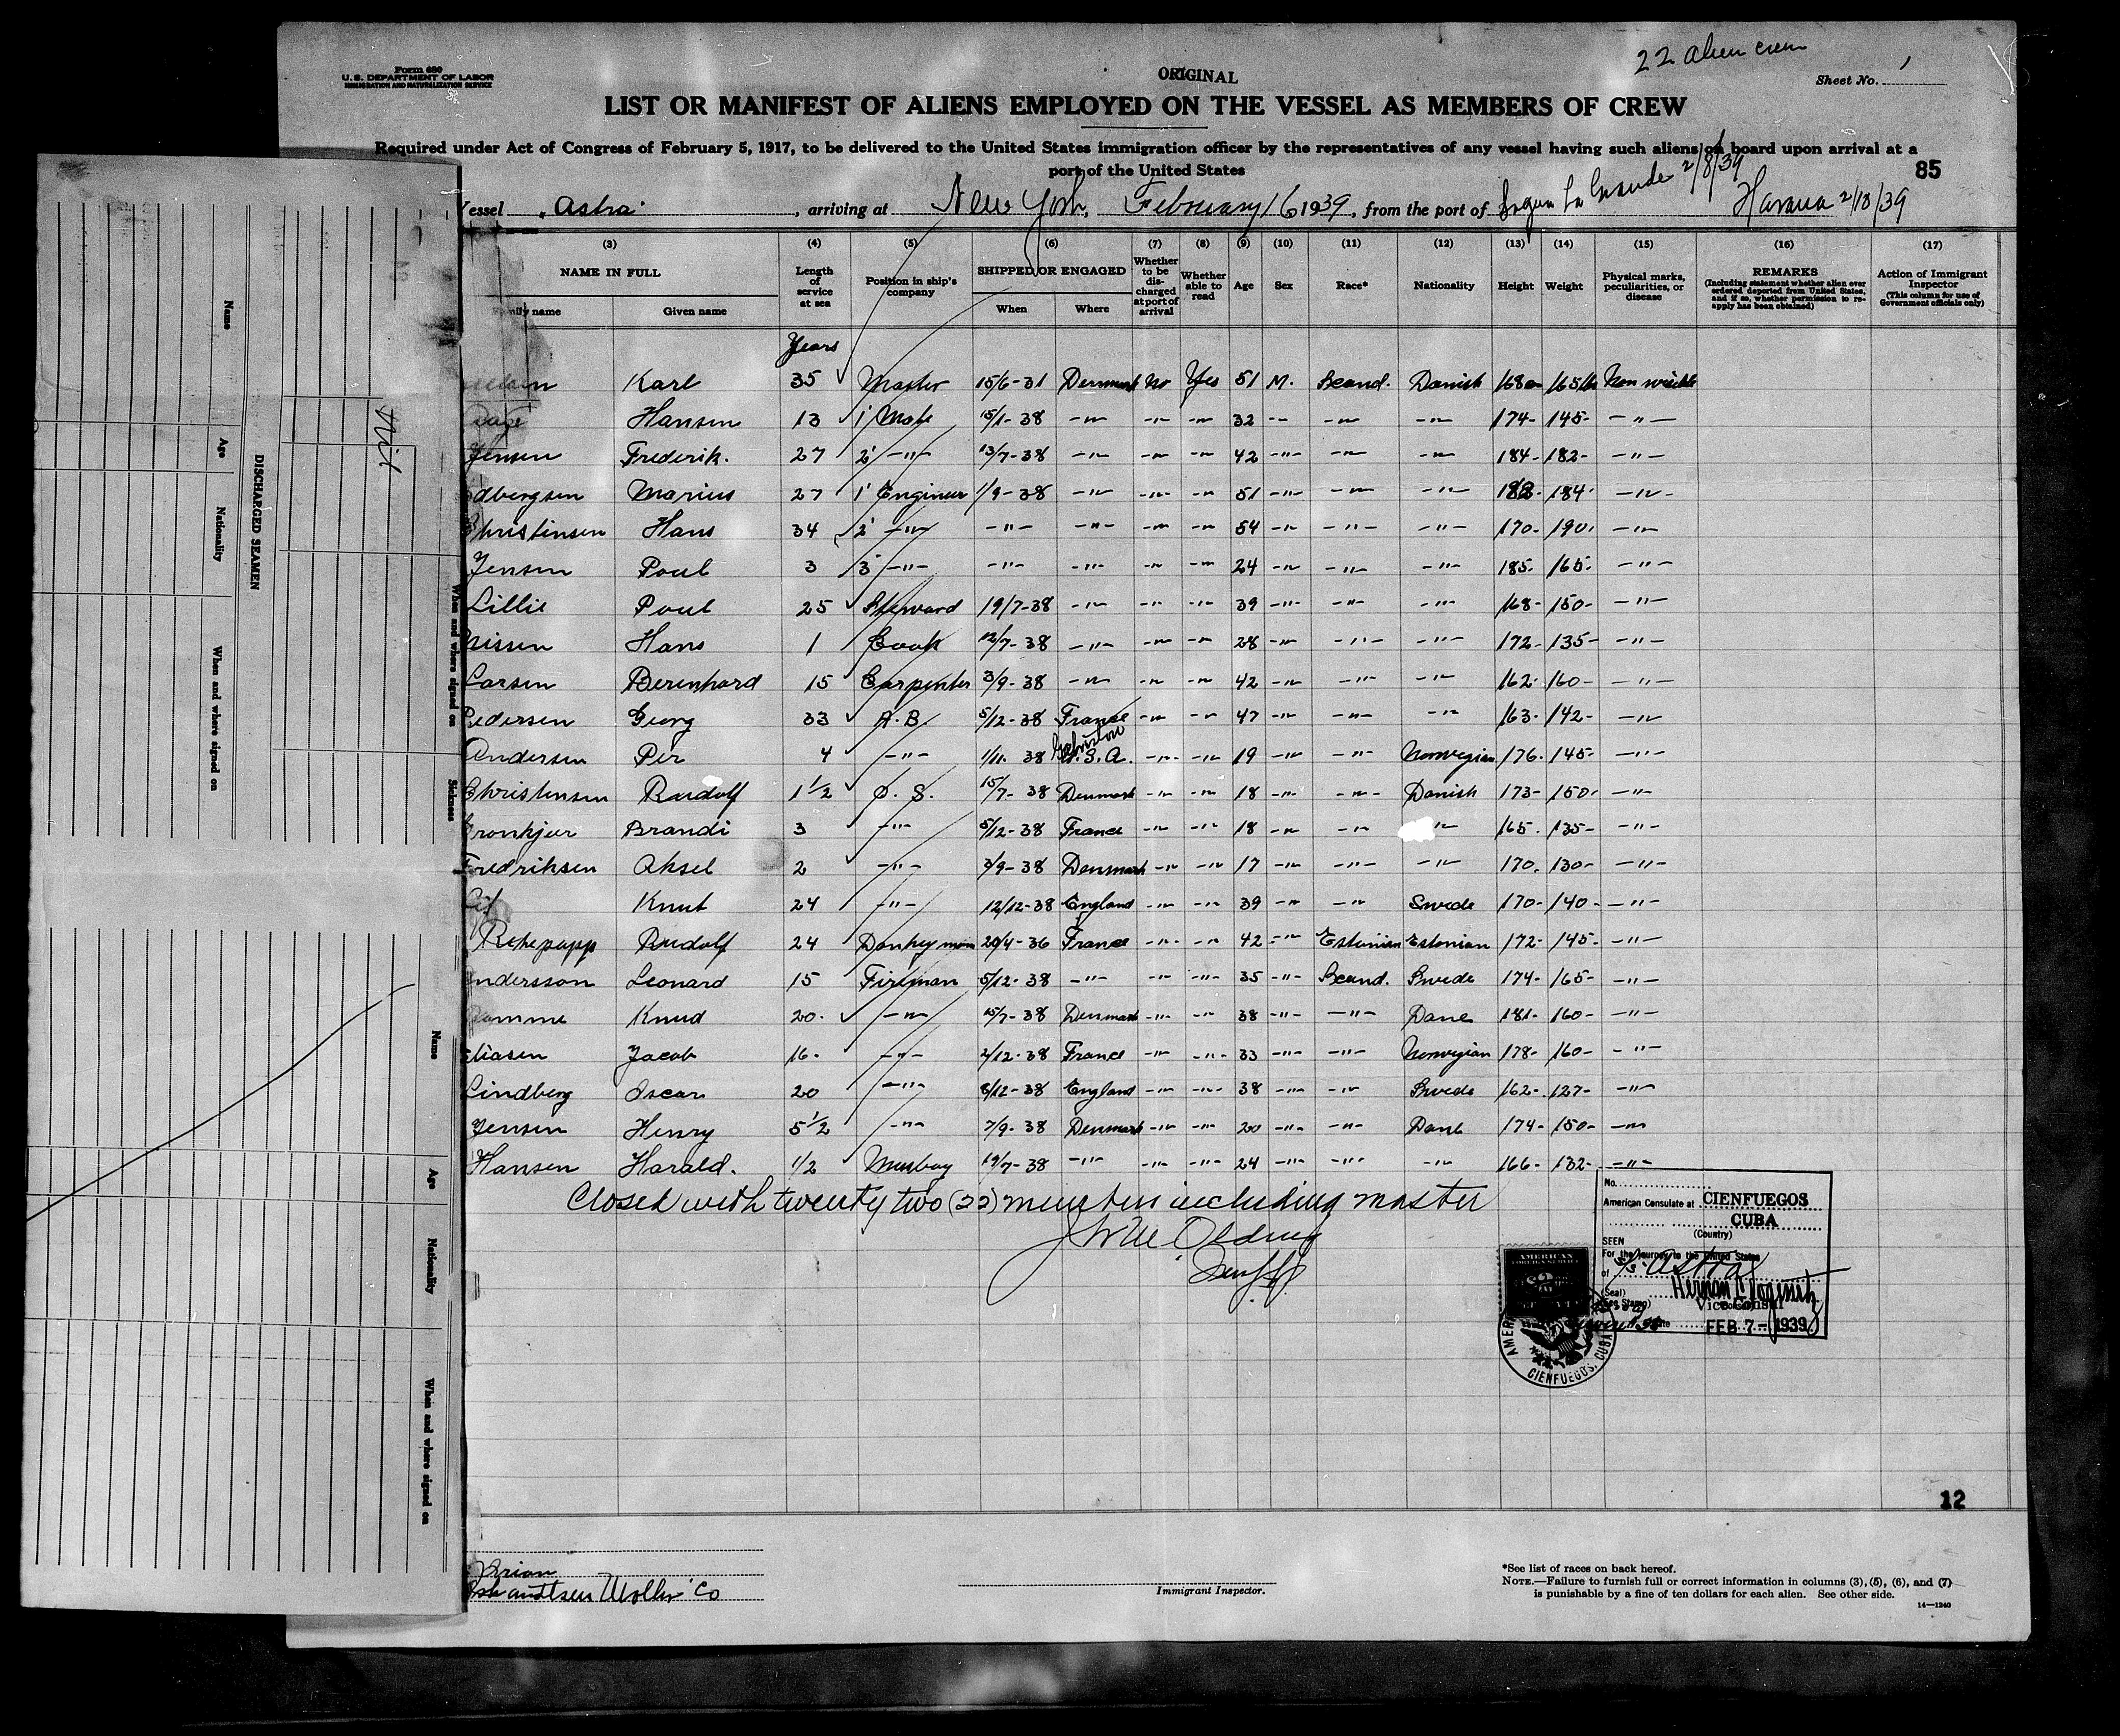 Form 680
U. S. DEPARTMENT OF LABOR
IMMIGRATION AND NATURALIZATION SERVICE
ORIGINAL
22 alien crew
Sheet No. 1
LIST OR MANIFEST OF ALIENS EMPLOYED ON THE VESSEL AS MEMBERS OF CREW
Required under Act of Congress of February 5, 1917, to be delivered to the United States immigration officer by the representatives of any vessel having such aliens on board upon arrival at a
port of the United States
85
Vessel "Astra", arriving at New York, February 16 1939, from the port of Sagua La Grande 2/8/39 Havana 2/10/39
(3) (4) (5) (6) (7) (8) (9) (10) (11) (12) (13) (14) (15) (16) (17)
NAME IN FULL
Family name Given name
Length of service at sea
Position in ship's company
SHIPPED OR ENGAGED
When Where
Whether to be discharged at port of arrival
Whether able to read
Age Sex Race* Nationality Height Weight
Physical marks, peculiarities, or disease
REMARKS
(Including statement whether alien ever ordered deported from United States, and if so, whether permission to reapply has been obtained)
Action of Immigrant Inspector
(This column for use of Government officials only)
Years
Karl 35 Master 15/6-31 Denmark No Yes 51 M. Scand. Danish 168 165 Non visible
Hansen 13 1' Mate 15/1-38 -"- -"- -"- 32 -"- -"- -"- 174- 145- -"-
Jensen Frederik. 27 2' -"- 13/7-38 -"- -"- -"- 42 -"- -"- -"- 184- 182- -"-
Marius 27 1' Engineer 1/9-38 -"- -"- -"- 51 -"- -"- -"- 184- -"-
Christensen Hans 34 2' -"- -"- -"- -"- -"- 54 -"- -"- -"- 170- 190- -"-
Jensen Poul 3 3' -"- -"- -"- -"- -"- 24 -"- -"- -"- 185- 165- -"-
Lillie Poul 25 Steward 19/7-38 -"- -"- -"- 39 -"- -"- -"- 168- 150- -"-
Nissen Hans 1 Cook 12/7-38 -"- -"- -"- 28 -"- -"- -"- 172- 135- -"-
Larsen Berenhard 15 Carpenter 3/9-38 -"- -"- -"- 42 -"- -"- -"- 162- 160- -"-
Pedersen Georg 33 A.B. 5/12-38 France -"- -"- 47 -"- -"- -"- 163- 142- -"-
Andersen Per 4 -"- 1/11-38 Galveston U.S.A. -"- -"- 19 -"- -"- Norwegian 176- 145- -"-
Christensen Rudolf 1 1/2 O.S. 15/7-38 Denmark -"- -"- 18 -"- -"- Danish 173- 150- -"-
Gronkjær Brandi 3 -"- 5/12-38 France -"- -"- 18 -"- -"- -"- 165- 135- -"-
Fredriksen Aksel 2 -"- 3/9-38 Denmark -"- -"- 17 -"- -"- -"- 170- 130- -"-
Knut 24 -"- 12/12-38 England -"- -"- 39 -"- -"- Swede 170- 140- -"-
Rehepapp Rudolf 24 Donkeyman 20/4-36 France -"- -"- 42 -"- Estonian Estonian 172- 145- -"-
Andersson Leonard 15 Fireman 5/12-38 -"- -"- -"- 35 -"- Scand. Swede 174- 165- -"-
Knud 20- -"- 15/7-38 Denmark -"- -"- 38 -"- -"- Dane 181- 160- -"-
Eliasen Jacob 16- -"- 2/12-38 France -"- -"- 33 -"- -"- Norwegian 178- 160- -"-
Lindberg Oscar 20 -"- 8/12-38 England -"- -"- 38 -"- -"- Swede 162- 127- -"-
Jensen Henry 5 1/2 -"- 7/9-38 Denmark -"- -"- 20 -"- -"- Dane 174- 150- -"-
Hansen Harald. 1/2 Messboy 19/7-38 -"- -"- -"- 24 -"- -"- -"- 166- 132- -"-
Closed with twenty two (22) members including master
No.
American Consulate at CIENFUEGOS
CUBA
(Country)
SEEN
For the journey to the United States
of S/S. Astra
(Seal)
(Fee Stamp)
Vice Consul
Date FEB 7 - 1939
AMERICAN
FOREIGN SERVICE
$2
CIENFUEGOS, CUBA
12
Immigrant Inspector.
*See list of races on back hereof.
NOTE.—Failure to furnish full or correct information in columns (3), (5), (6), and (7)
is punishable by a fine of ten dollars for each alien. See other side.
14—1240
DISCHARGED SEAMEN
Name
Age
Nationality
When and where signed on
Nil
When and where signed on
Sickness
Name
Age
Nationality
When and where signed on